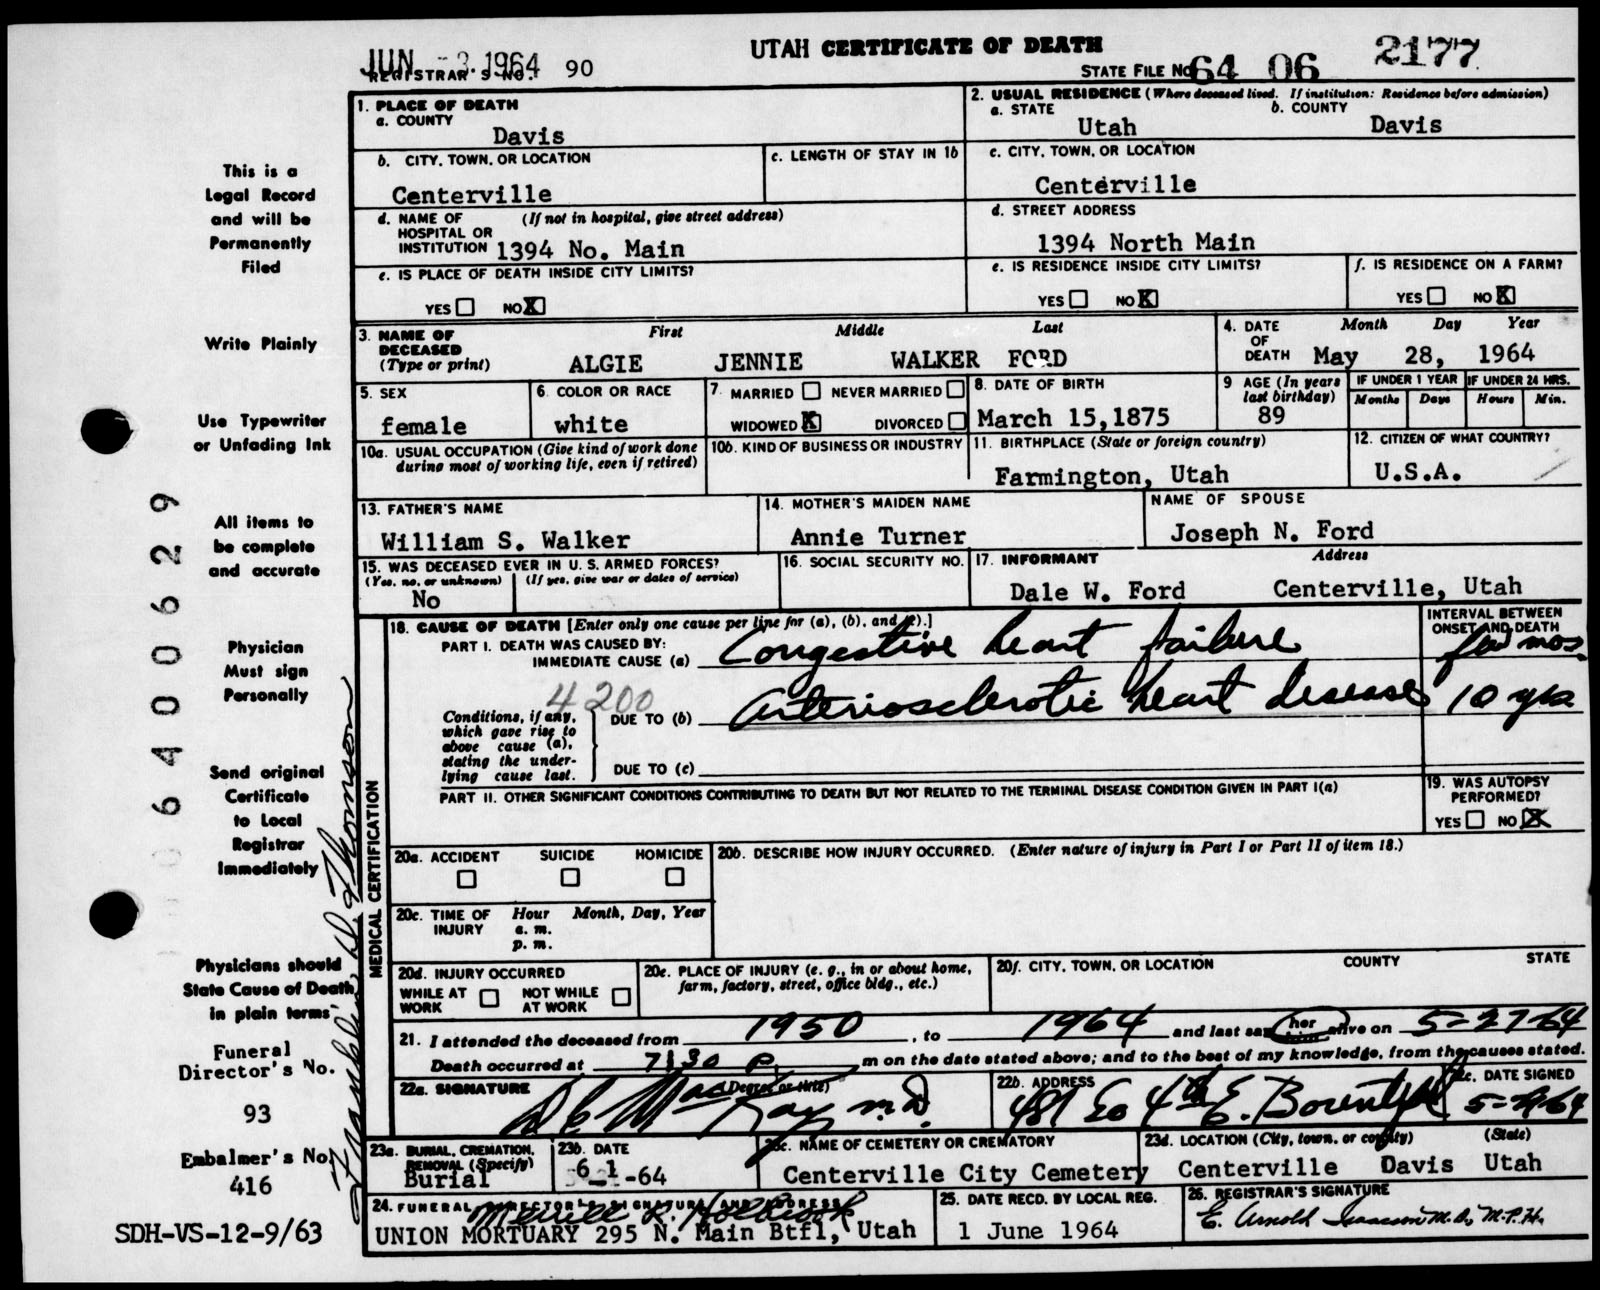 UTAH CERTIFICATE OF DEATH
JUN -3.1964 90
REGISTRAR'S NO.
STATE FILE NO. 64 06 2177
1. PLACE OF DEATH
a. COUNTY
Davis
2. USUAL RESIDENCE (Where deceased lived. If institution: Residence before admission)
a. STATE b. COUNTY
Utah Davis
b. CITY, TOWN, OR LOCATION
Centerville
c. LENGTH OF STAY IN 1b
c. CITY, TOWN, OR LOCATION
Centerville
d. NAME OF HOSPITAL OR INSTITUTION (If not in hospital, give street address)
1394 No. Main
d. STREET ADDRESS
1394 North Main
e. IS PLACE OF DEATH INSIDE CITY LIMITS?
YES NO X
e. IS RESIDENCE INSIDE CITY LIMITS?
YES NO X
f. IS RESIDENCE ON A FARM?
YES NO X
3. NAME OF DECEASED (Type or print)
First Middle Last
ALGIE JENNIE WALKER FORD
4. DATE OF DEATH
Month Day Year
May 28, 1964
5. SEX
female
6. COLOR OR RACE
white
7. MARRIED NEVER MARRIED
WIDOWED X DIVORCED
8. DATE OF BIRTH
March 15,1875
9 AGE (In years last birthday)
89
IF UNDER 1 YEAR
Months Days
IF UNDER 24 HRS.
Hours Min.
10a. USUAL OCCUPATION (Give kind of work done during most of working life, even if retired)
10b. KIND OF BUSINESS OR INDUSTRY
11. BIRTHPLACE (State or foreign country)
Farmington, Utah
12. CITIZEN OF WHAT COUNTRY?
U.S.A.
13. FATHER'S NAME
William S. Walker
14. MOTHER'S MAIDEN NAME
Annie Turner
NAME OF SPOUSE
Joseph N. Ford
15. WAS DECEASED EVER IN U. S. ARMED FORCES?
(Yes, no, or unknown) (If yes, give war or dates of service)
No
16. SOCIAL SECURITY NO.
17. INFORMANT Address
Dale W. Ford Centerville, Utah
MEDICAL CERTIFICATION
18. CAUSE OF DEATH [Enter only one cause per line for (a), (b), and (c).]
INTERVAL BETWEEN ONSET AND DEATH
PART I. DEATH WAS CAUSED BY:
IMMEDIATE CAUSE (a) Congestive heart failure few mos.
4200
Conditions, if any, which gave rise to above cause (a), stating the underlying cause last.
DUE TO (b) Arteriosclerotic heart disease 10 yrs
DUE TO (c)
PART II. OTHER SIGNIFICANT CONDITIONS CONTRIBUTING TO DEATH BUT NOT RELATED TO THE TERMINAL DISEASE CONDITION GIVEN IN PART I(a)
19. WAS AUTOPSY PERFORMED?
YES NO X
20a. ACCIDENT SUICIDE HOMICIDE
20b. DESCRIBE HOW INJURY OCCURRED. (Enter nature of injury in Part I or Part II of item 18.)
20c. TIME OF INJURY
Hour Month, Day, Year
a. m.
p. m.
20d. INJURY OCCURRED
WHILE AT WORK NOT WHILE AT WORK
20e. PLACE OF INJURY (e. g., in or about home, farm, factory, street, office bldg., etc.)
20f. CITY, TOWN, OR LOCATION COUNTY STATE
21. I attended the deceased from 1950, to 1964 and last saw her alive on 5-27-64
Death occurred at 7:30 P. m on the date stated above; and to the best of my knowledge, from the causes stated.
22a. SIGNATURE (Degree or title)
M.D.
22b. ADDRESS
22c. DATE SIGNED
23a. BURIAL, CREMATION, REMOVAL (Specify)
Burial
23b. DATE
6-1-64
23c. NAME OF CEMETERY OR CREMATORY
Centerville City Cemetery
23d. LOCATION (City, town, or county) (State)
Centerville Davis Utah
24. FUNERAL DIRECTOR'S SIGNATURE AND ADDRESS
Merrill K. Holbrook
UNION MORTUARY 295 N. Main Btfl, Utah
25. DATE RECD. BY LOCAL REG.
1 June 1964
26. REGISTRAR'S SIGNATURE
E. Arnold Isaacson M.D., M.P.H.
This is a
Legal Record
and will be
Permanently
Filed
Write Plainly
Use Typewriter
or Unfading Ink
All items to
be complete
and accurate
Physician
Must sign
Personally
Send original
Certificate
to Local
Registrar
Immediately
Physicians should
State Cause of Death
in plain terms
Funeral
Director's No.
93
Embalmer's No.
416
SDH-VS-12-9/63
Franklin D. Thomson
06400629